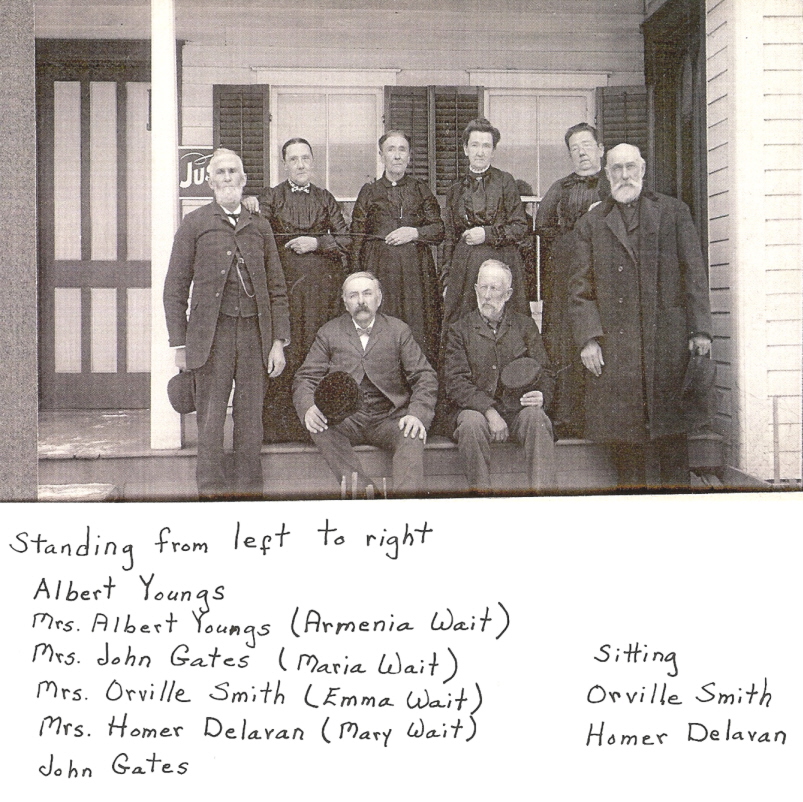 Jus
Standing from left to right
Albert Youngs
Mrs. Albert Youngs (Armenia Wait)
Mrs. John Gates (Maria Wait)
Mrs. Orville Smith (Emma Wait)
Mrs. Homer Delavan (Mary Wait)
John Gates
Sitting
Orville Smith
Homer Delavan